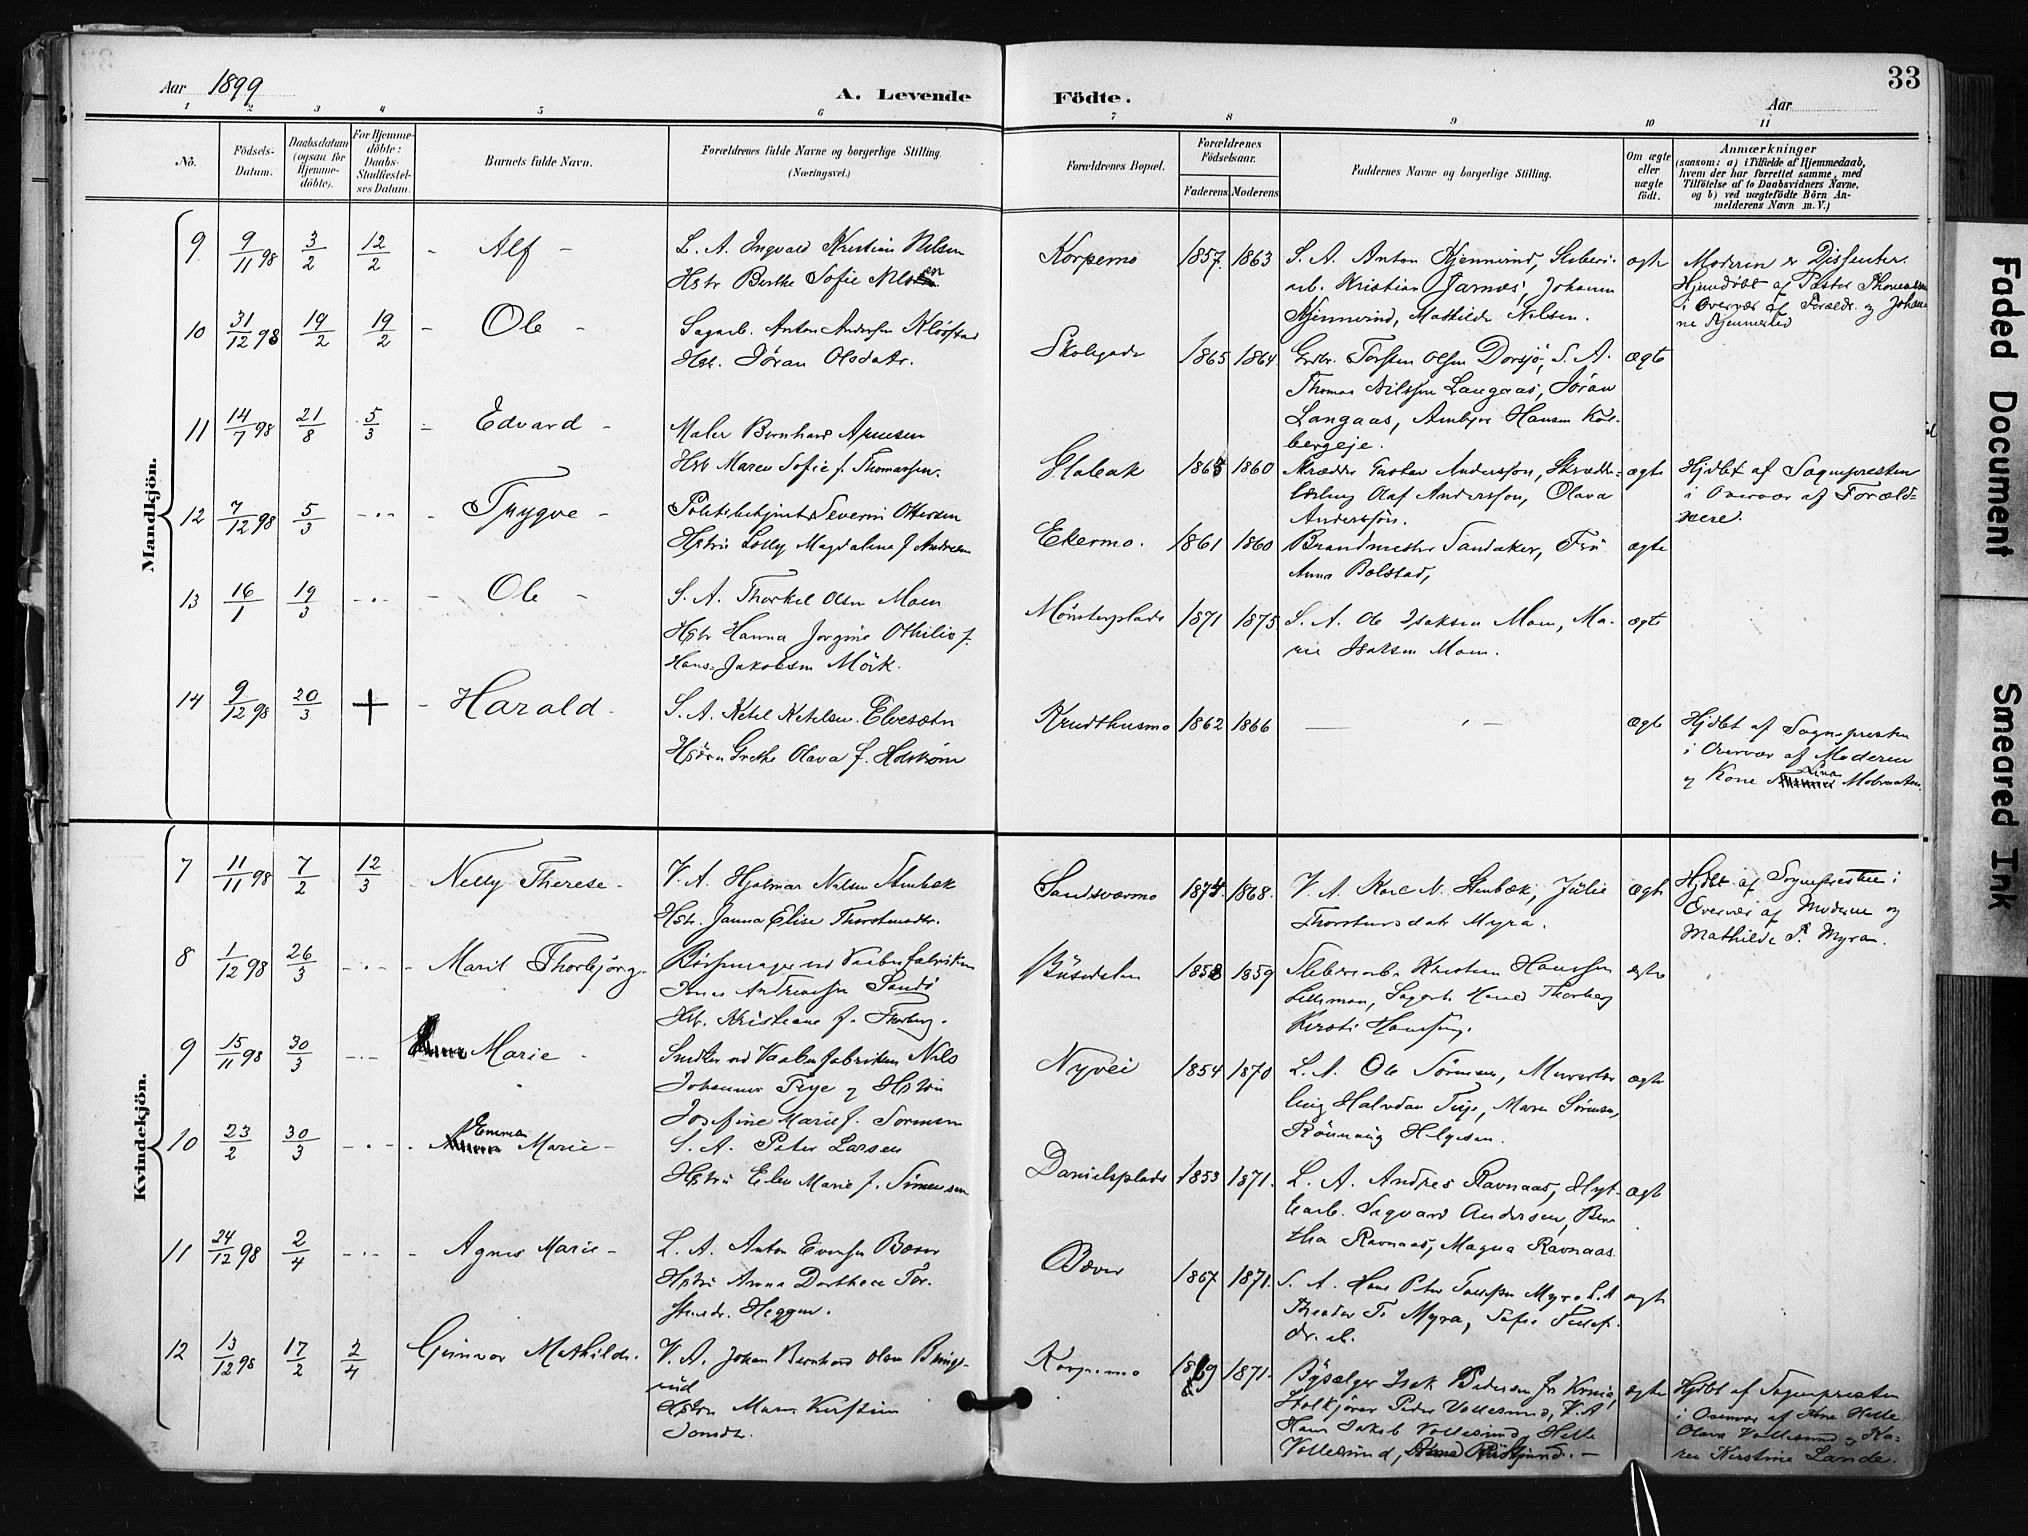 33
Aar 1899
A. Levende
Födte.
Aar
1 2 3 4 5 6 7 8 9 10 11
No.
Födsels-Datum.
Daabsdatum (ogsaa for Hjemme-döbte).
For Hjemme-döbte: Daabs-Stadfæstel-ses Datum.
Barnets fulde Navn.
Forældrenes fulde Navne og borgerlige Stilling.
(Næringsvei.)
Forældrenes Bopæl.
Forældrenes Födselsaar.
Faderens Moderens
Faddernes Navne og borgerlige Stilling.
Om ægte eller uægte født.
Anmærkninger
(saasom: a) i Tilfælde af Hjemmedaab,
hvem der har forrettet samme, med
Tilföielse af to Daabsvidners Navne,
og b) ved uægtefödte Börn An-
melderens Navn m. V.)
Mandkjön.
9 9/11 98 3/2 12/2 - Alf -
L. A. Ingvald Kristian Nilsen
Hstr Berthe Sofie Nilsen
Korpemo 1857. 1863
S. A. Anton Kjennerud, Sliberi-
arb. Kristian Jarnæs, Johanne
Kjennerud, Mathilde Nilsen.
ægte
Moderen er Dissenter.
Hjemdöbt af Pastor
i Overvær af Foreldr. og Johan-
ne Kjennerud
10 31/12 98 19/2 19/2 - Ole -
Sagarb. Anton Andersen Klöfstad
Hstr. Jöran Olsdatr.
Skolegade 1865 1864.
Grdbr. Torsten Olsen Dorsjö, S. A.
Thomas Nilssen Langaas, Jöran
Langaas, Hansen Kol-
bergeje.
ægte
11 14/7 98 21/8 5/3 - Edvard -
Maler Bernhard Arnesen
Hstr Maren Sofie f. Thomassen.
Glabak 1865 1860
Skrædder Gustav Andersson, Skrædder-
lærling Olaf Andersson, Olava
Anderssön.
ægte
Hjdbt af Sognepresten
i Overvær af Foræld-
rere.
12 7/12 98 5/3 - . - - Trygve -
Politibetjent Severin Ottersen
Hstru Lolly Magdalena f Andresen
Ekermo. 1861 1860
Brandmester Sandaker, Fru
Anna Bolstad,
ægte
13 16/1 19/3 - . - - Ole -
S. A. Thorkel Olsen Moen
Hstr Hanna Jorgine Othilie f.
Hans Jakobsen Mörk.
Mönsterplads 1871 1875
S. A. Ole Isaksen Moen, Ma-
rie Isaksen Moen.
ægte
14 9/12 98 20/3 + - Harald -
S. A. Ketil Ketilsen Elvesætr
Hstru Grethe Olava f. Holström
Krudthusmo 1862 1866
ægte
Hjdbt af Sognepresten
i Overvær af Moderen
og Kone Lina Mobraaten.
Kvindekjön.
7 11/11 98 7/2 12/3 - Nelly Therese -
V. A. Hjalmar Nilsen Stenbæk
Hstr. Janna Elise Thorstensdtr.
Sandsværmo 1874. 1868.
V. A. Karl N. Stenbæk, Julie
Thorstensdatr Myra.
ægte
Hjdbt. af Sognepresten i
Overvær af Moderen og
Mathilde P. Myran.
8 1/12 98 26/3 - . - - Marit Thorbjörg -
Börsemager ved Vaabenfabriken
Jonas Andreasen Sandö
Hstr. Kristiane f. Thorberg.
1858 1859
Sliberiarb. Kristian Hanssen
Lillemoen, Sagarb. Harald Thorberg
Kirsti Hanssen.
ægte
9 15/11 98 30/3 - . - Marie -
Smed ved Vaabenfabriken Nils
Johannes Teye og Hstru
Josefine Marie f. Sorensen
Nyvei 1854 1870
L. A. Ole Sörensen, Murerlær-
ling Halvdan Teye, Maren Sörensen,
Rönnaug Helgesen.
ægte
10 23/2 30/3 - . - - Emma Marie -
S. A. Peter Larsen
Hstru Elen Marie f. Simensen
Danielsplads 1853 1871.
L. A. Andres Ravnaas, Hyt-
tearb. Sigvard Andersen, Ber-
tha Ravnaas, Magna Ravnaas.
ægte
11 24/12 98 2/4 - . - - Agnes Marie -
L. A. Anton Evensen Bæver
Hstru Anna Dorthea Tor-
stensdr. Heggen.
Bæver 1867 1871.
S. A. Hans Peter Myra L. A
Theodor T. Myra, Sofie
dr. ib.
ægte
12 13/12 98 17/2 2/4 Gunvor Mathilde.
V. A. Johan Bernhard Olsen Bings-
rud
Hstru Maren Kirstine
Jonsdr.
Korpemo 1869 1871.
Bysælger Isak Pedersen
Peder Vollesund, V. A
Hans Jakob Vollesund, Helle
Vollesund,
ægte
Hjdbt af Sognepresten
i Overvær af Helle
Olava Vollesund og Ka-
ren Kirstine Lande.
Faded Document
Smeared Ink